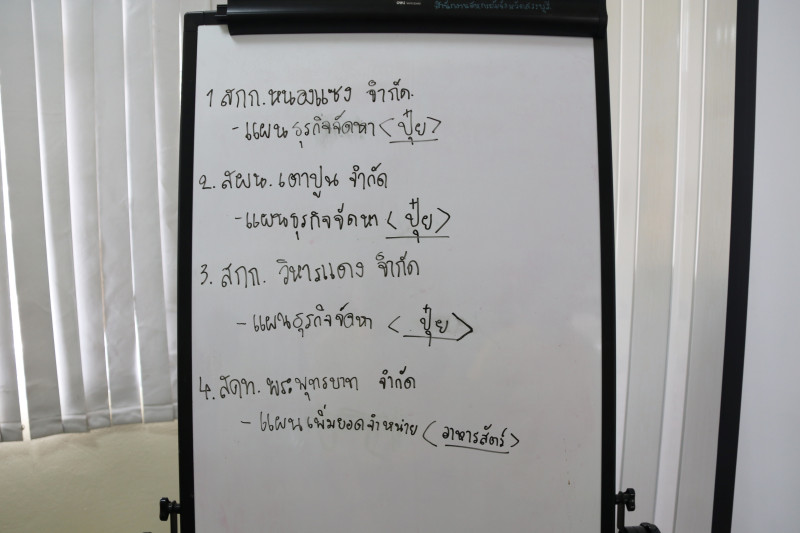 สำนักงานสหกรณ์จังหวัดสระบุรี
1 สกก.หนองแซง จำกัด.
- แผนธุรกิจจัดหา < ปุ๋ย >
2. สผน. เตาปูน จำกัด
- แผนธุรกิจจัดหา < ปุ๋ย >
3. สกก. วิหารแดง จำกัด
- แผนธุรกิจจัดหา < ปุ๋ย >
4. สคท. พระพุทธบาท จำกัด
- แผนเพิ่มยอดจำหน่าย < อาหารสัตว์ >